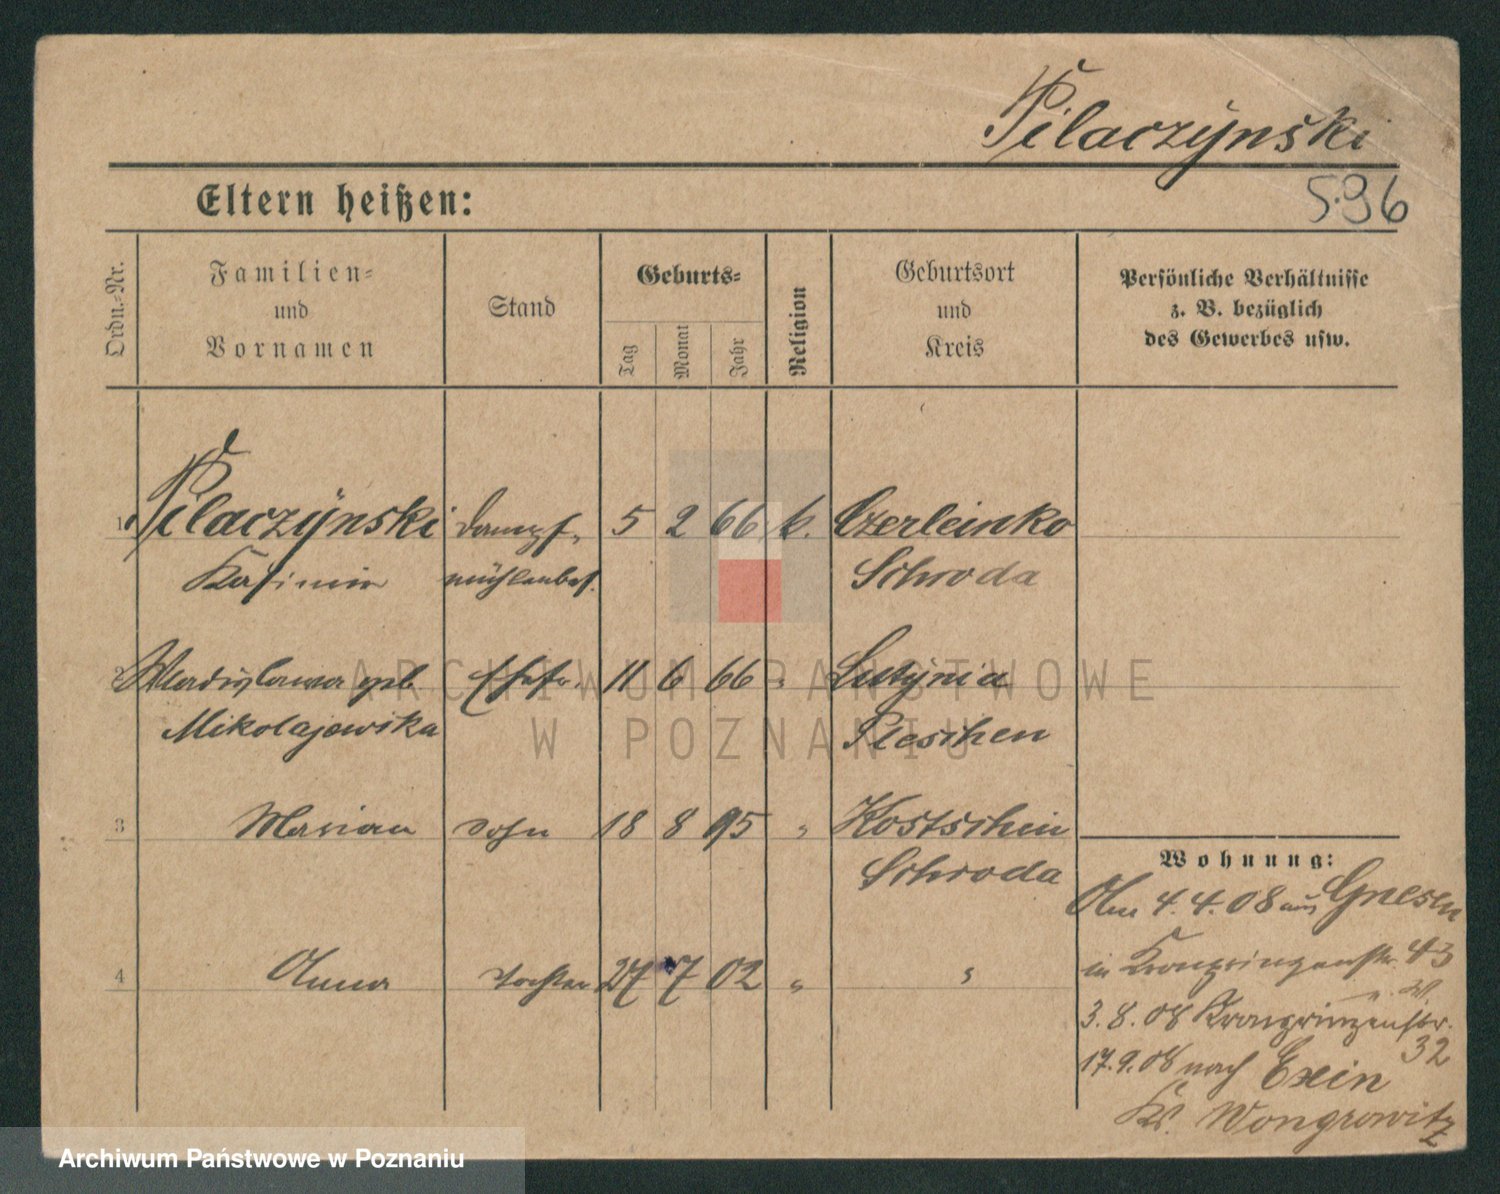 Pilaczÿnski
596
Eltern heißen:
Ordn.-Nr.
Familien-
und
Vornamen
Stand
Geburts-
Tag
Monat
Jahr
Religion
Geburtsort
und
Kreis
Persönliche Verhältnisse
z. B. bezüglich
des Gewerbes usw.
1 Pilaczÿnski Dampf- 5 2 66 k. Czerleinko
Kasimir mühlenbes. Schroda
2 Wladislawa geb. Ehefr. 11 6 66 " Lutÿnia
Mikolajewska Pleschen
3 Marian Sohn 18 8 95 " Kostschin
Schroda
4 Anna Tochter 27 7 02 " "
Wohnung:
Am 4.4.08 aus Gnesen
in Kronprinzenstr. 43
3.8.08 Kronprinzenstr.
32
17.9.08 nach Exin
Kr. Wongrowitz
ARCHIWUM PAŃSTWOWE
W POZNANIU
Archiwum Państwowe w Poznaniu